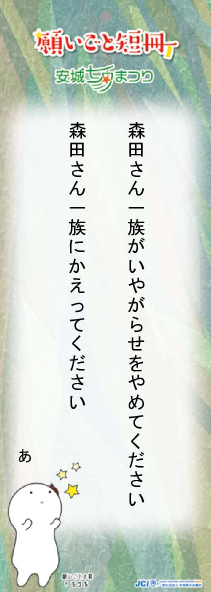 願いごと短冊
安城七夕まつり
森田さん一族がいやがらせをやめてください
森田さん一族にかえってください
あ
願いごと短冊
JCI